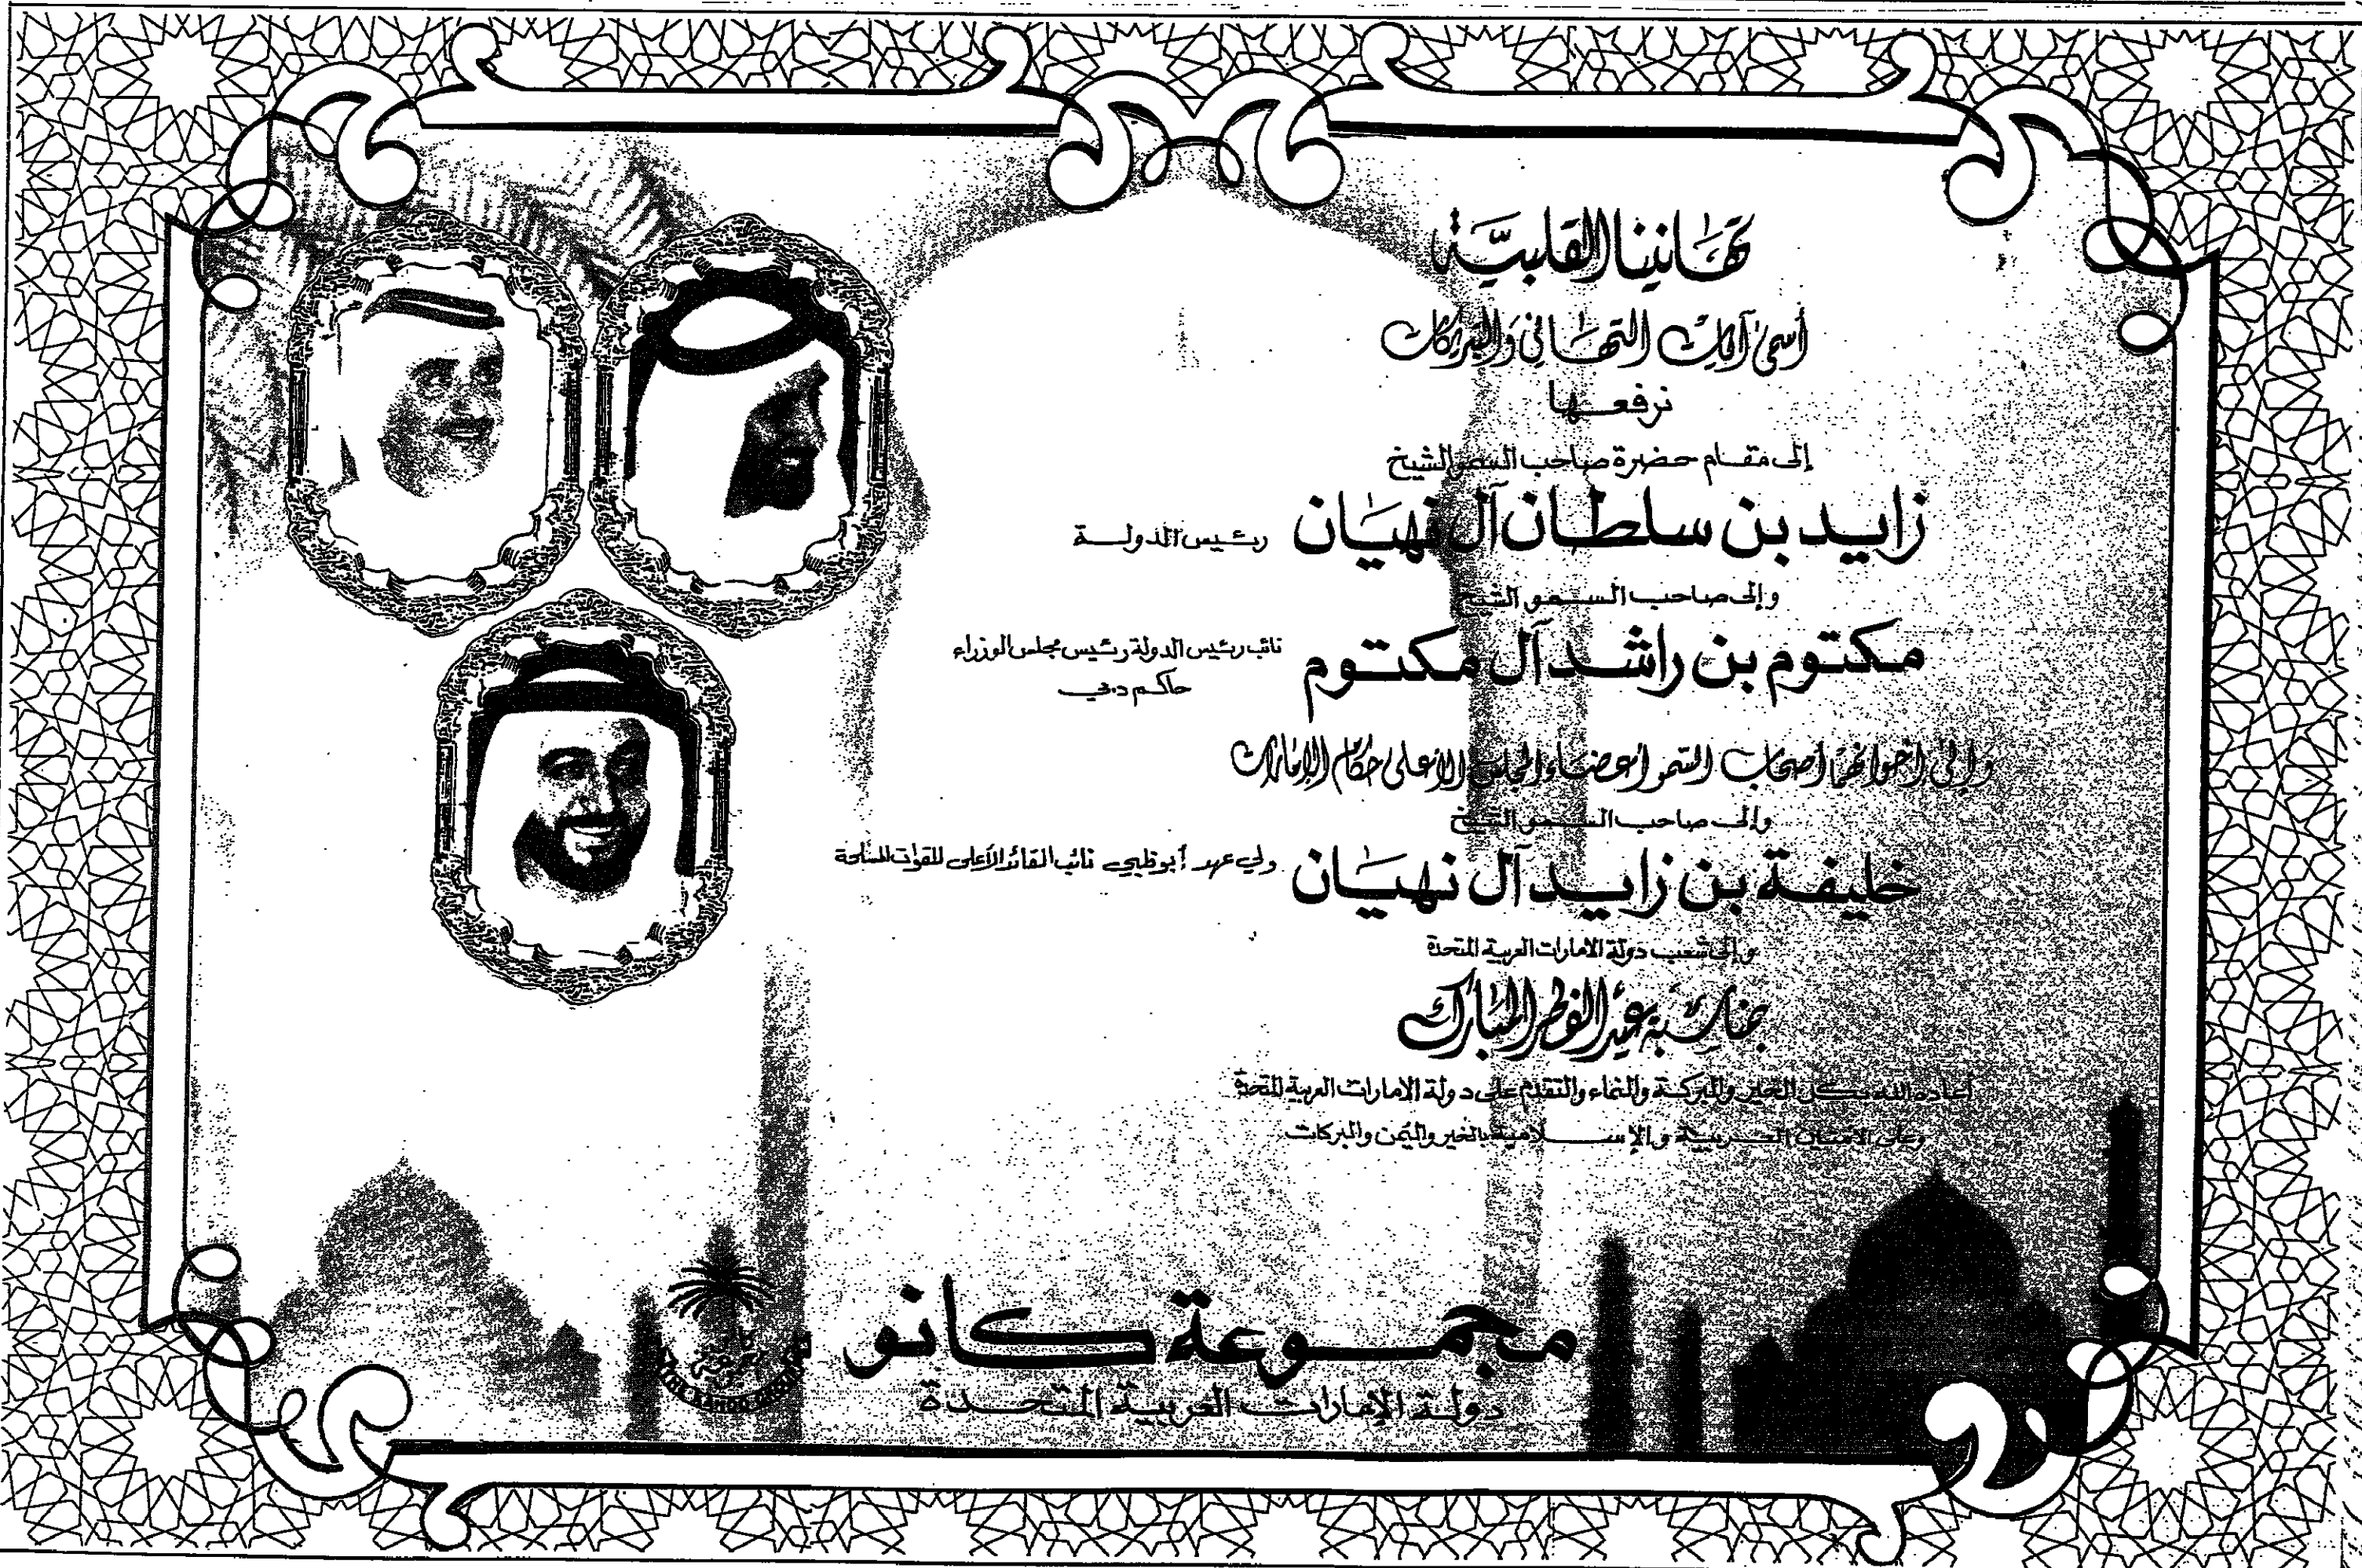 تهانينا القلبية
أسمى آيات التهاني والتبريكات
نرفعها
إلى مقام حضرة صاحب السمو الشيخ
زايد بن سلطان آل نهيان رئيس الدولة
وإلى صاحب السمو الشيخ
مكتوم بن راشد آل مكتوم نائب رئيس الدولة رئيس مجلس الوزراء
حاكم دبي
وإلى أخوانهما أصحاب السمو أعضاء المجلس الأعلى حكام الإمارات
وإلى صاحب السمو الشيخ
خليفة بن زايد آل نهيان ولي عهد أبوظبي نائب القائد الأعلى للقوات المسلحة
وإلى شعب دولة الامارات العربية المتحدة
بمناسبة عيد الفطر المبارك
أعاده الله بكل الخير والبركة والنماء والتقدم على دولة الامارات العربية المتحدة
وعلى الأمتين العربية والإسلامية بالخير واليمن والبركات
مجموعة كانو
دولة الإمارات العربية المتحدة